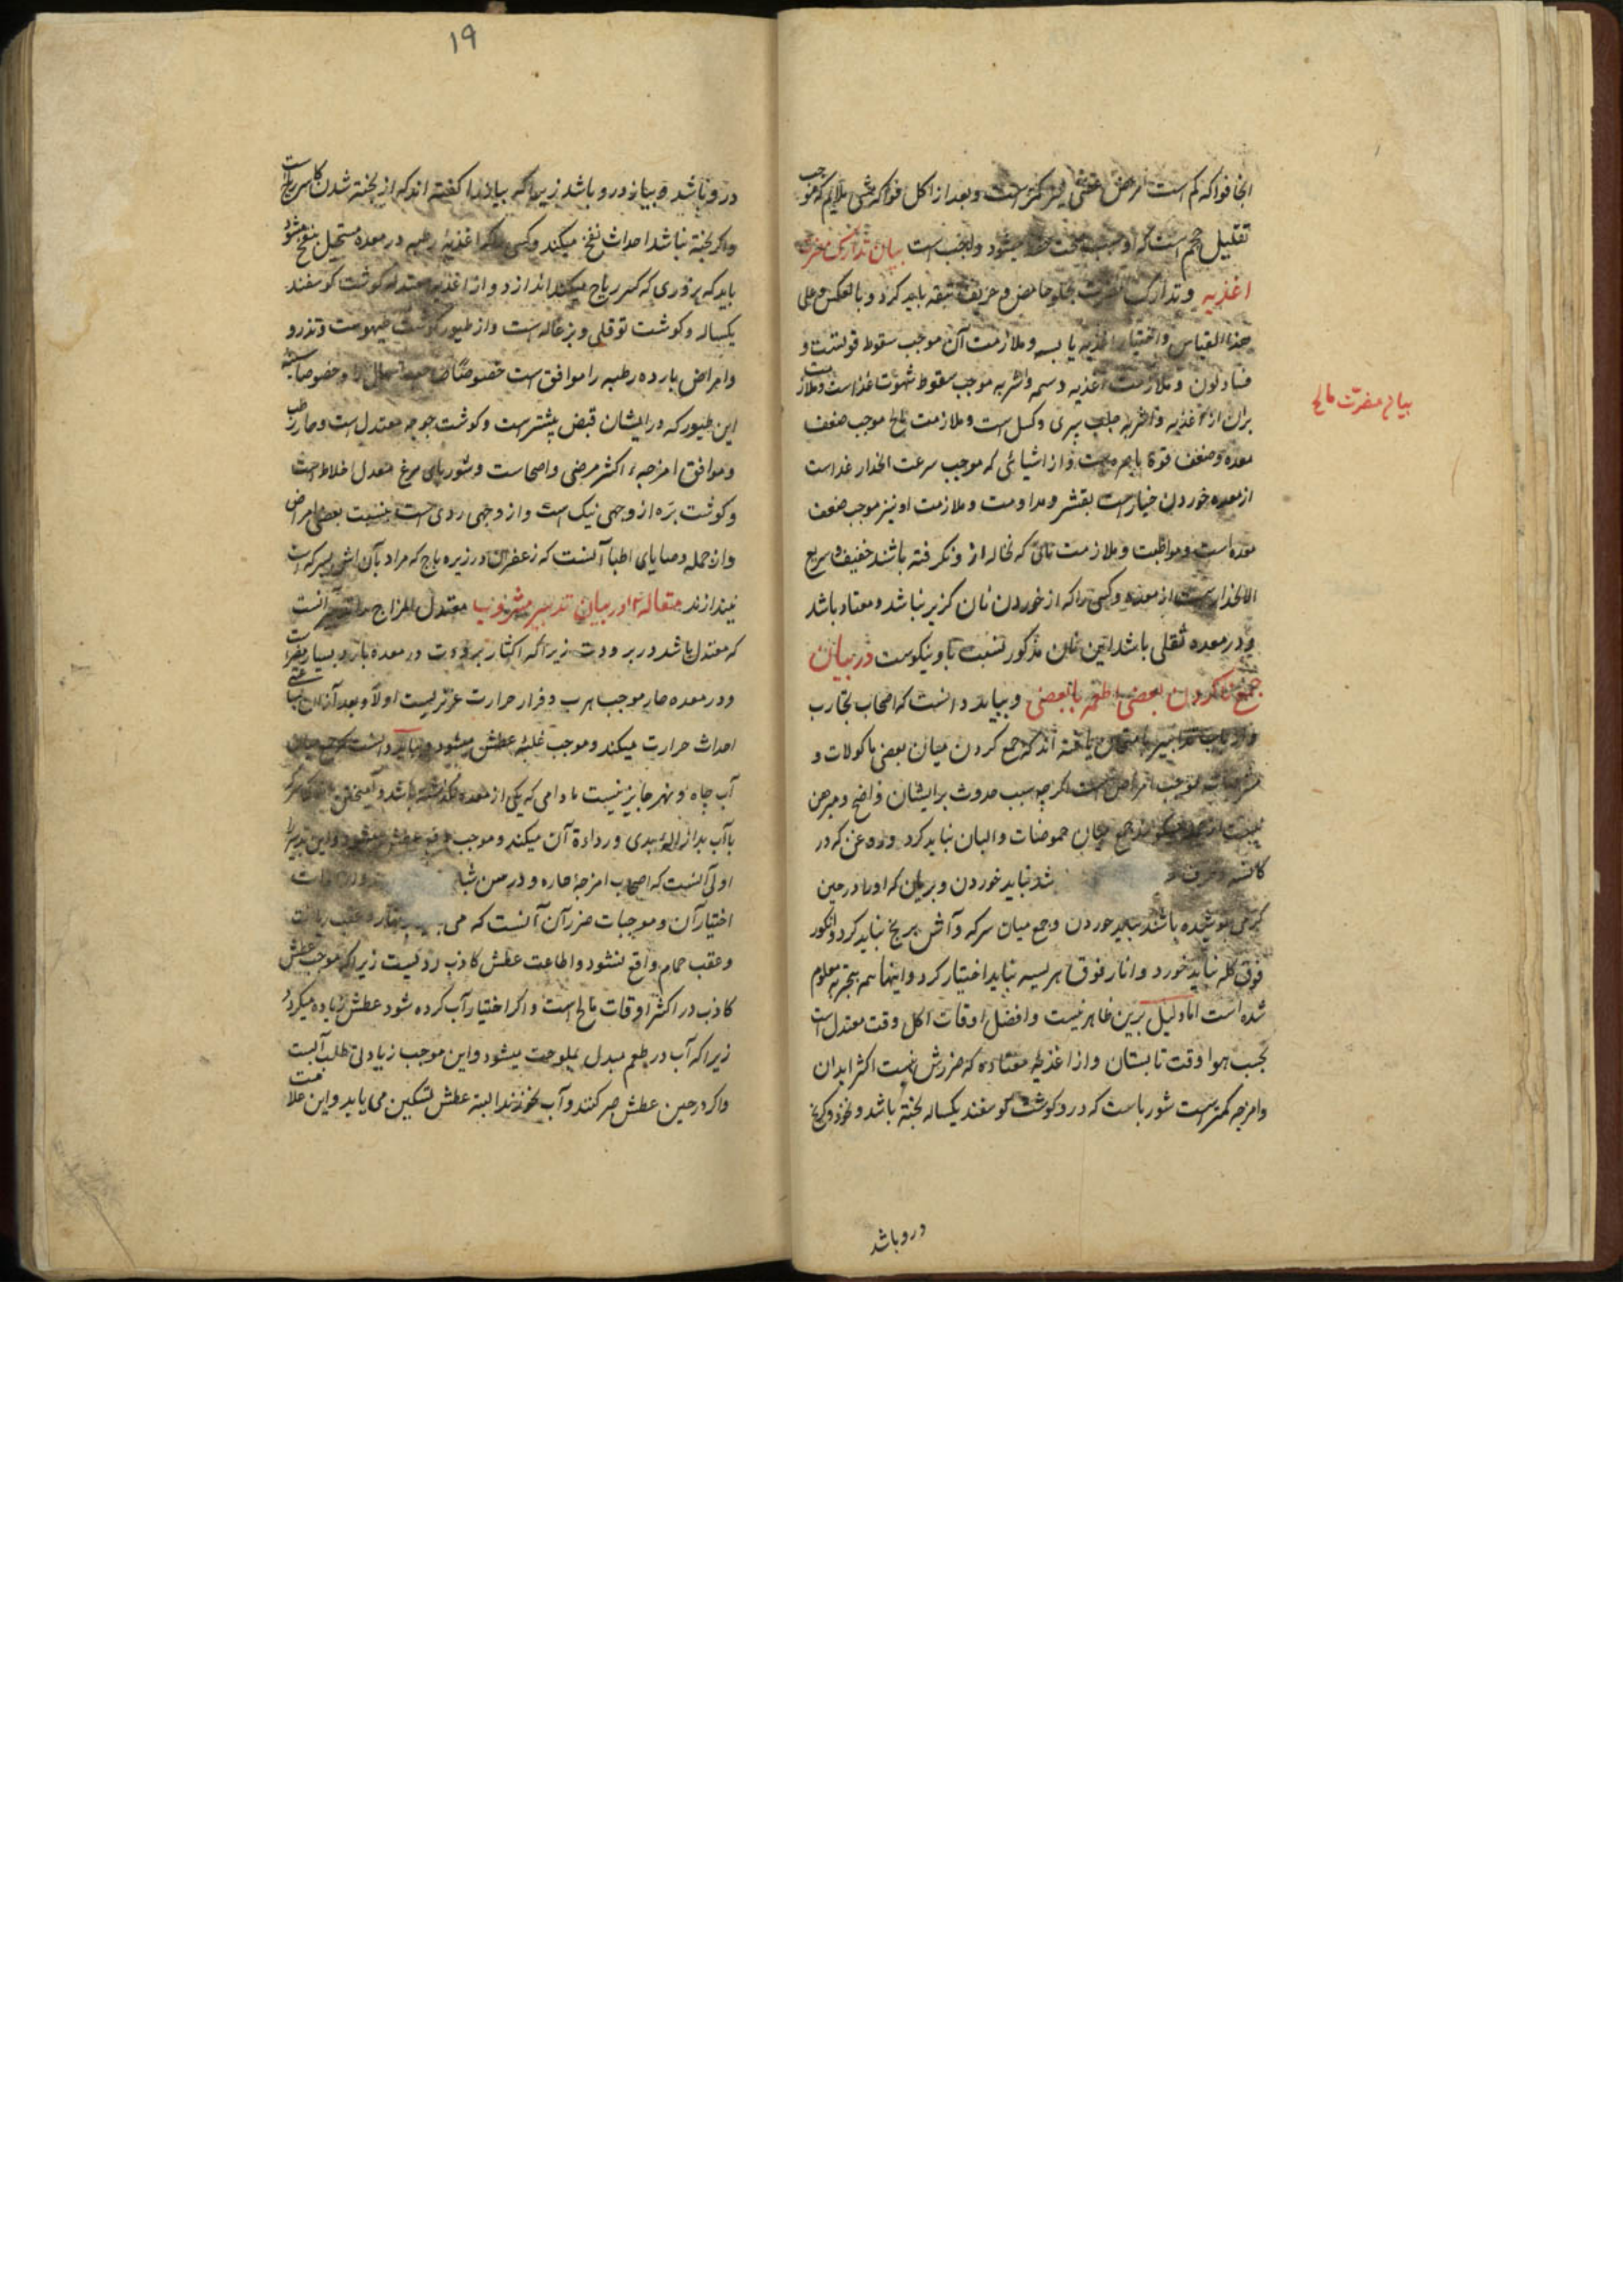 انجا فواکه کم است مرض عفنی نیز کمتر است و بعد از اکل فواکه مشی ملایم که موجب
تقلیل حجم است که او سبب میشود واجب است بیان تدارک مضرت
اغذیه و تدارک مضرت بحلو حامض و حریف تفه باید کرد و بالعکس و علی
هذا القیاس و اختیار اغذیه یابسه و ملازمت آن موجب سقوط قوتست و
فساد لون و ملازمت اغذیه دسمه و اشربه موجب سقوط شهوت غذاست و ملازمت
بران از اغذیه و اشربه جالب پیری و کسل است و ملازمت مالح موجب ضعف
بیان مضرت مالح
معده و ضعف قوة باصره است و از اشیائی که موجب سرعت انحدار غذاست
از معده خوردن خیار است بقشر و مداومت و ملازمت او نیز موجب ضعف
معده است و مواظبت و ملازمت نانی که نخاله از و نگرفته باشند خفیف و سریع
الانحدار است از معده و کسی را که از خوردن نان گزیر نباشد و معتاد باشد
و در معده ثقلی باشد این نان مذکور نسبت باو نیکوست در بیان
جمع نکردن بعضی اطعمه با بعضی و بباید دانست که اصحاب تجارب
و ارباب تدابیر بامتحان یافته اند که جمع کردن میان بعضی ماکولات و
مشروبات موجب امراض است اگرچه سبب حدوث بر ایشان واضح و مبرهن
نیست جمع میان حموضات و البان نباید کرد و روغن که در
کاسه شد نباید خوردن و بریان که او را در حین
گرمی پوشیده باشند نباید خوردن و جمع میان سرکه و آش برنج نباید کرد و انگور
فوق کله نباید خورد و انار فوق هریسه نباید اختیار کرد و اینها همه بتجربه معلوم
شده است اما دلیل برین ظاهر نیست و افضل اوقات اکل وقت معتدل است
بحسب هوا وقت تابستان و از اغذیه معتاده که ضررش نسبت اکثر ابدان
و امزجه کمتر است شورباست که درو گوشت گوسفند یکساله پخته باشد و نخود و کرنج
درو باشد
۱۹
درو باشد و پیاز درو باشد زیرا که پیاز را گفته اند که از پخته شدن کاسر ریاح است
و اگر پخته نباشد احداث نفخ میکند و کسی را که اغذیه رطبه در معده مستحیل بنفخ میشود
باید که بزوری که کسر ریاح میکند اندازد و از اغذیه معتدله گوشت گوسفند
یکساله و گوشت توقلی و بزغاله است و از طیور گوشت تیهوست و تذرو
و امراض بارده رطبه را موافق است خصوصًا صاحب اسهال را و خصوصا سینه
این طیور که در ایشان قبض بیشتر است و گوشت جوجه معتدل است و حار رطب
و موافق امزجهء اکثر مرضی و اصحاست و شوربای مرغ معدل اخلاط است
و گوشت بره از وجهی نیک است و از وجهی ردی است بنسبت بعضی امراض
و از جمله وصایای اطبا آنست که زعفران در زیره باج که مراد بآن آش سرکه است
نیندازند مقاله ۲ در بیان تدبیر مشروب معتدل المزاج آنست
که معتدل باشد در برودت زیرا که اکثار برودت در معده بارد بسیار مضر است
و در معده حار موجب هرب و فرار حرارت غریزیست اولاً و بعد از آن
احداث حرارت میکند و موجب غلبهٔ عطش میشود و بباید دانست که جمع میان
آب چاه و نهر جایز نیست مادامی که یکی از معده نگذشته باشد و آمیختن
با آب بد ازالهٔ بدی و رداءة آن میکند و موجب دفع عطش میشود و این تدبیر را
اولی آنست که اصحاب امزجهٔ حاره و در سن
اختیار آن و موجبات ضرر آن آنست که می
و عقب حمام واقع نشود و اطاعت عطش کاذب رد نیست زیرا که موجب عطش
کاذب در اکثر اوقات مالح است و اگر اختیار آب کرده شود عطش زیاده میگردد
زیرا که آب در طعم مبدل بملوحت میشود و این موجب زیادتی طلب آبست
و اگر در حین عطش صبر کنند و آب نخورند البته عطش تسکین می یابد و این علامت